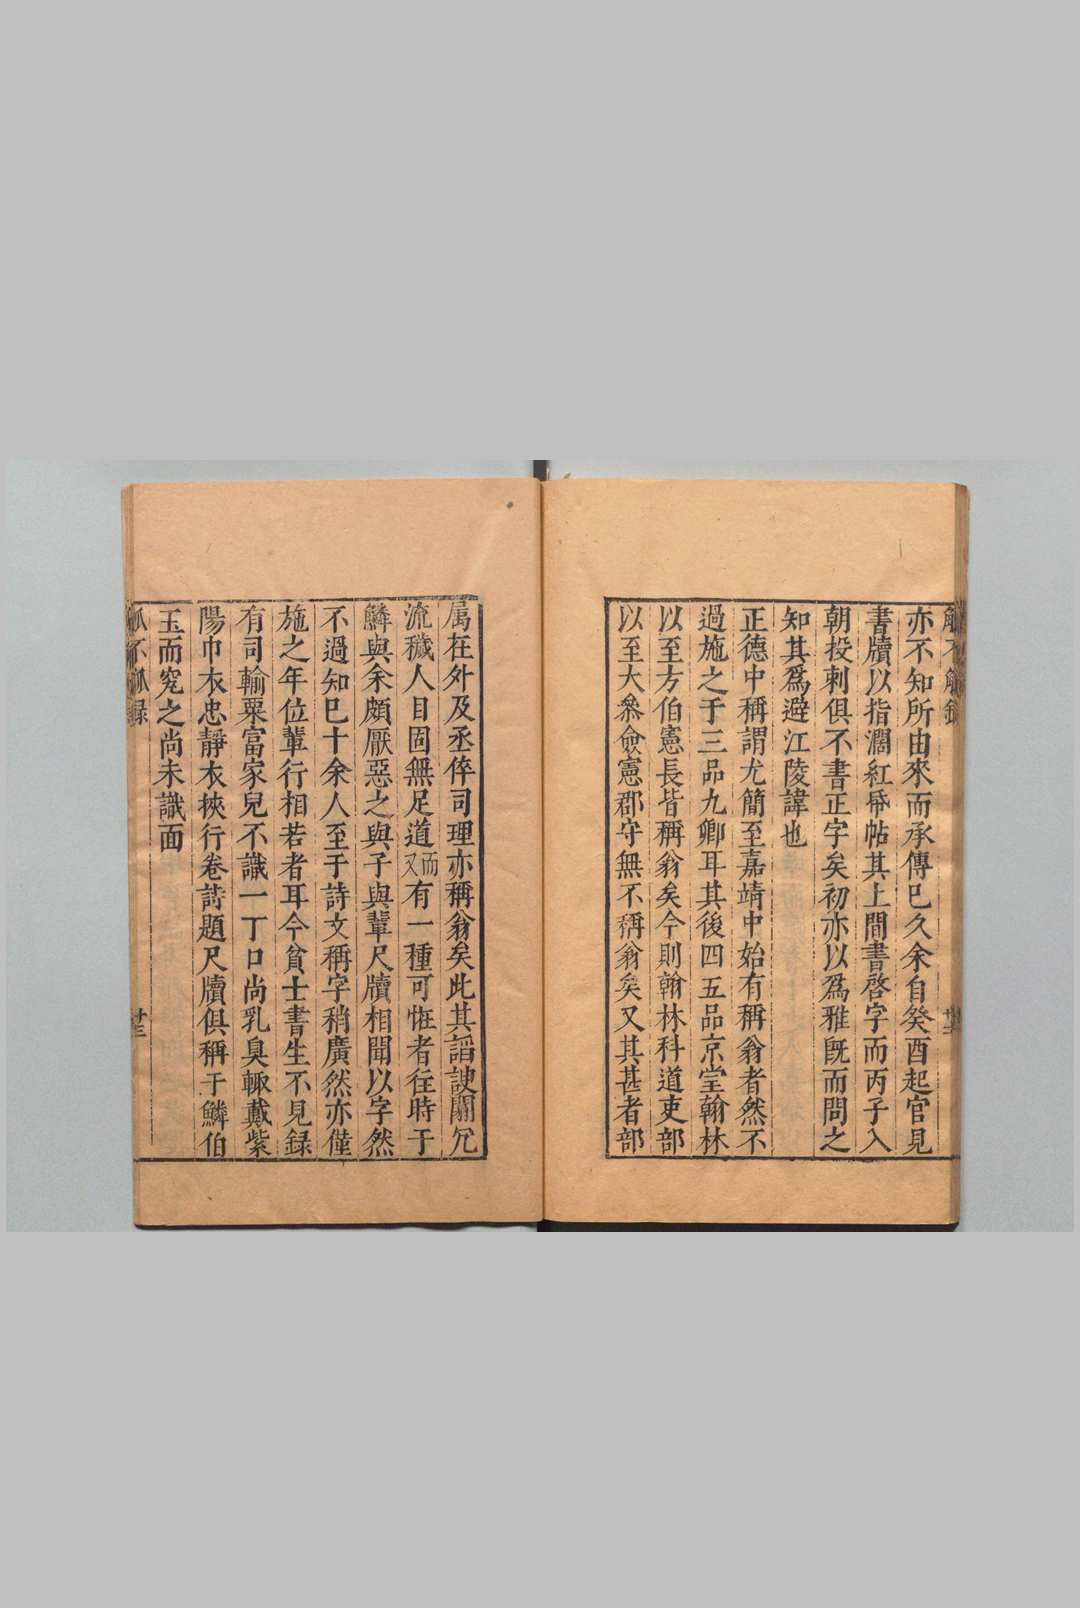 亦不知所由來而承傳已久余自癸酉起官見
書牘以指濶紅帋帖其上間書啓字而丙子入
朝投刺俱不書正字矣初亦以爲雅旣而問之
知其爲避江陵諱也
正德中稱謂尤簡至嘉靖中始有稱翁者然不
過施之于三品九卿耳其後四五品京堂翰林
以至方伯憲長皆稱翁矣今則翰林科道吏部
以至大叅僉憲郡守無不稱翁矣又其甚者部
属在外及丞倅司理亦稱翁矣此其謟諛闒冗
流穢人目固無足道而又有一種可恠者往時于
鱗與余頗厭惡之與子與輩尺牘相聞以字然
不過知巳十余人至于詩文稱字稍廣然亦僅
施之年位輩行相若者耳今貧士書生不見録
有司輸粟富家兒不識一丁口尚乳臭輙戴紫
陽巾衣忠靜衣挾行卷詩題尺牘俱稱于鱗伯
玉而究之尚未識面
觚不觚録
廿三